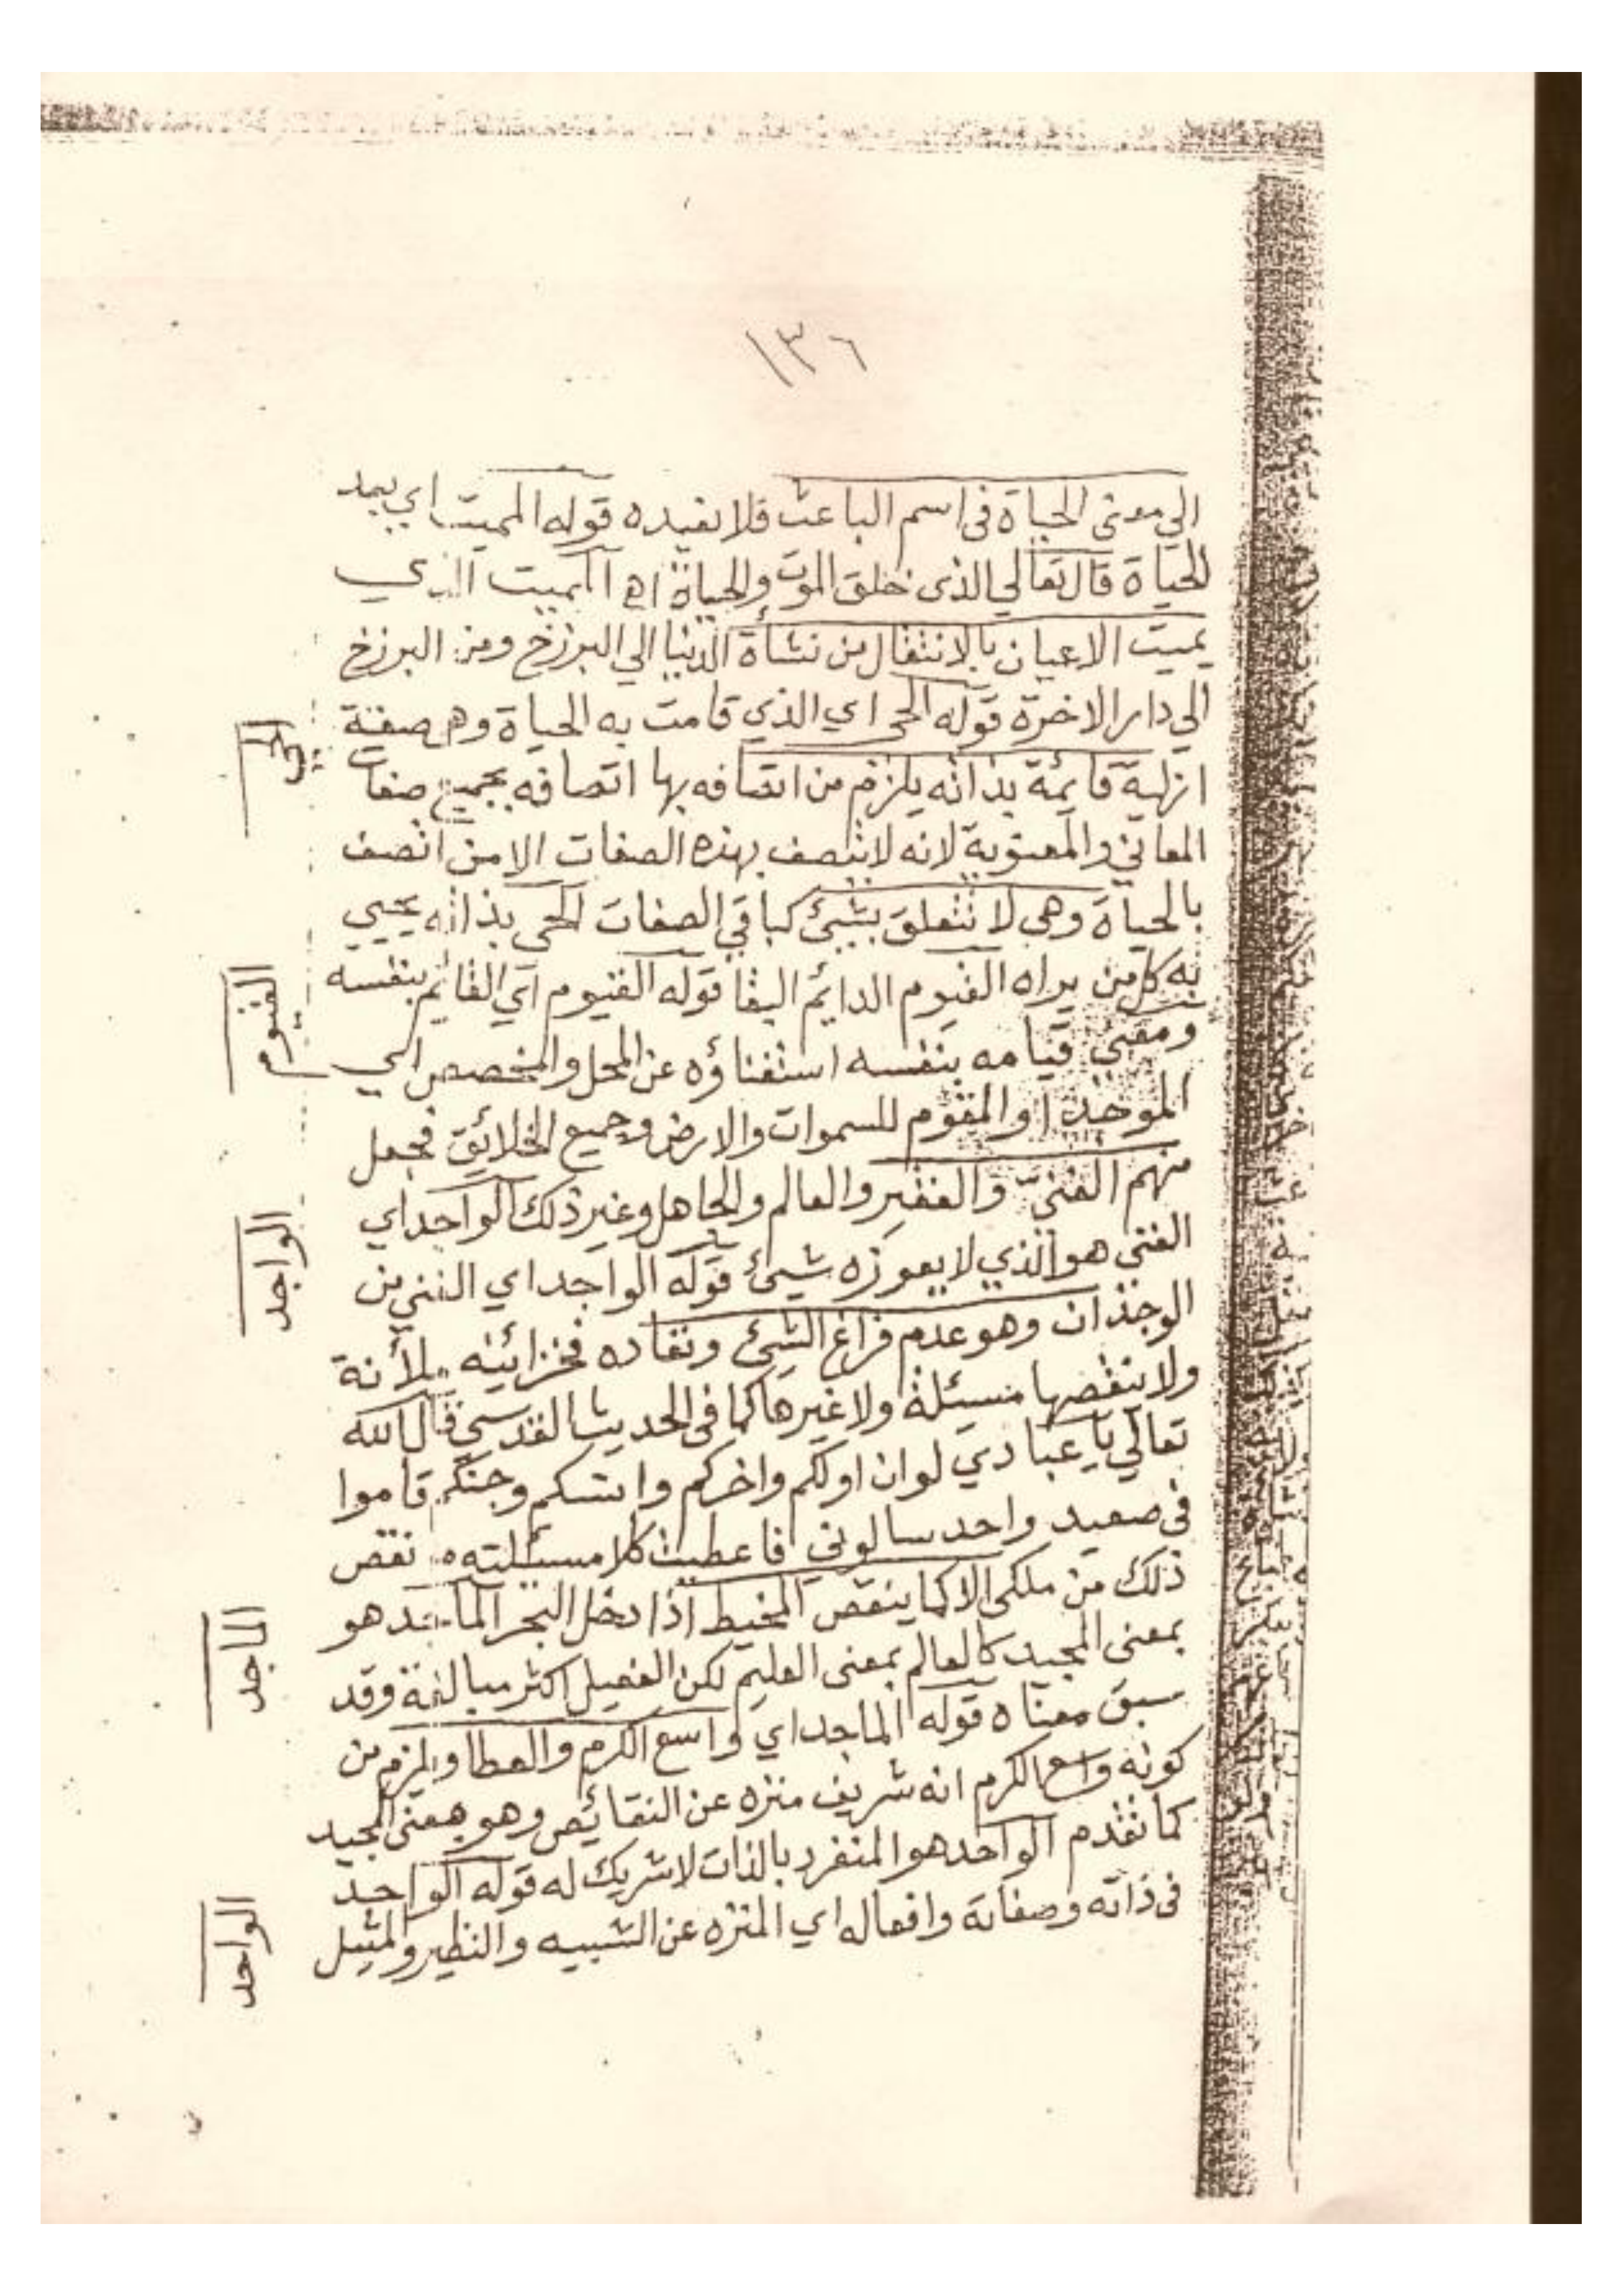 ١٣٦
الي معنى الحياة فى اسم الباعث فلا نفيده قوله المميت اي بعد
الحياة قال تعالي الذى خلق الموت والحياة اه المميت الذي
يميت الاعيان بالانتقال من نشأة الدنيا الي البرزخ ومن البرزخ
الي دار الاخرة قوله الحى اي الذي قامت به الحياة وهى صفة
ازلية قايمة بذاته يلزم من اتصافه بها اتصافه بجميع صفات
المعاني والمعنوية لانه لا يتصف بهذه الصفات الا من اتصف
بالحياة وهي لا تتعلق بشيئ كباقي الصفات الحى بذاته يحيي
به كل من يراه القيوم الدايم البقا قوله القيوم اي القائم بنفسه
ومعني قيامه بنفسه استغناؤه عن المحل والمخصص اي
الموجد او المقوم للسموات والارض وجميع الخلائق فجعل
منهم الغنيّ والفقير والعالم والجاهل وغير ذلك الواجد اي
الغني هو الذي لا يعوزه شيئ قوله الواجد اي الغني من
الوجدان وهو عدم فراغ الشيئ ونفاده فخزائنه ملأنة
ولا ينقصها مسئلة ولا غيرها كما فى الحديث القدسي قال الله
تعالي يا عبادي لو ان اولكم واخركم وانسكم وجنكم قاموا
فى صعيد واحد سالوني فاعطيت كلا مسئلته ما نقص
ذلك من ملكى الا كما ينقص المخيط اذا دخل البحر الماجد هو
بمعنى المجيد كالعالم بمعنى العليم لكن الفعيل اكثر مبالغة وقد
سبق معناه قوله الماجد اي واسع الكرم والعطا ويلزم من
كونه واسع الكرم انه شريف منزه عن النقائص وهو بمعنى المجيد
كما تقدم الواحد هو المنفرد بالذات لا شريك له قوله الواحد
فى ذاته وصفاته وافعاله اي المنزه عن الشبيه والنظير والمثيل
الحي
القيوم
الواجد
الماجد
الواحد